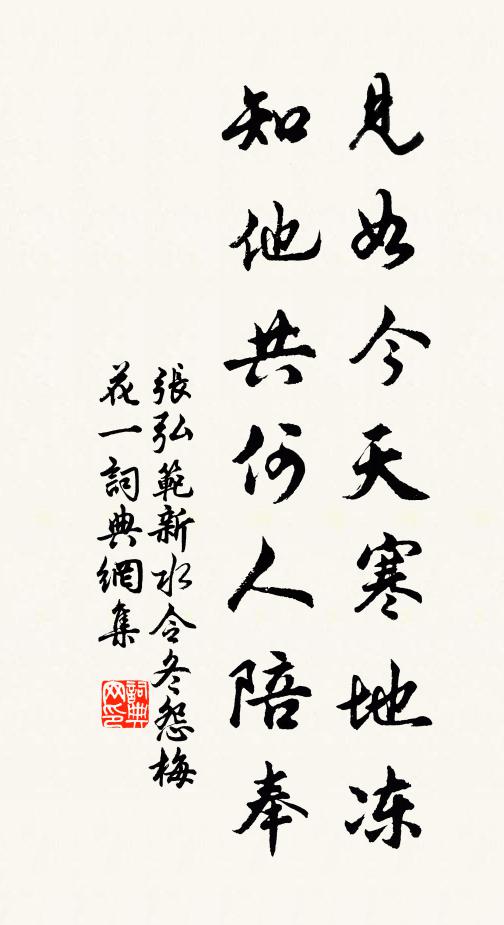 見如今天寒地冻
知他共何人陪奉
張弘範新水令冬怨梅
花一詞典網集
詞典网印